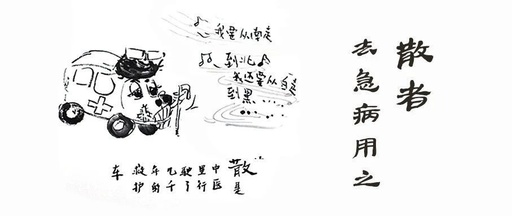 我要从南走
到北
我还要从白走
到黑……
“散”是
中医
里行
驶了
几千
年的
救护
车
散者
去急病用之